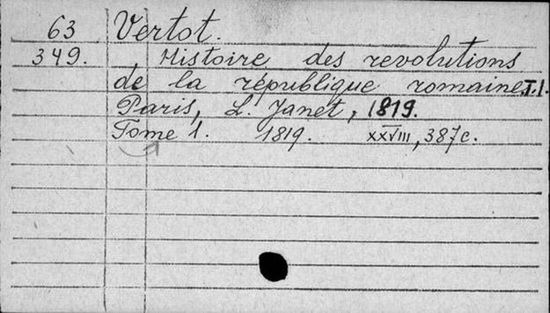 63 Vertot.
349. Histoire des revolutions
de la république romaine. T.1.
Paris, L. Janet, 1819.
Tome 1. 1819. XXVIII, 387 c.